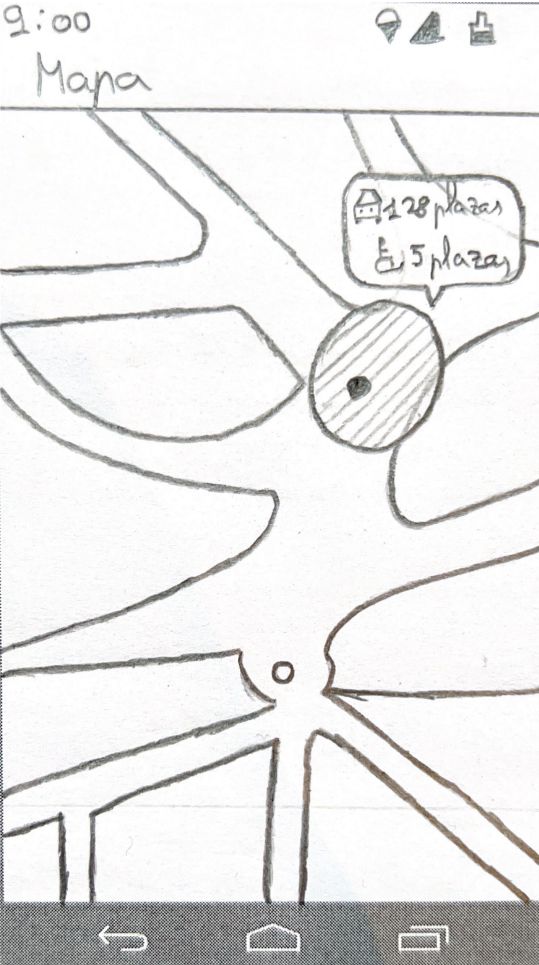 9:00
Mapa
128 plazas
5 plazas